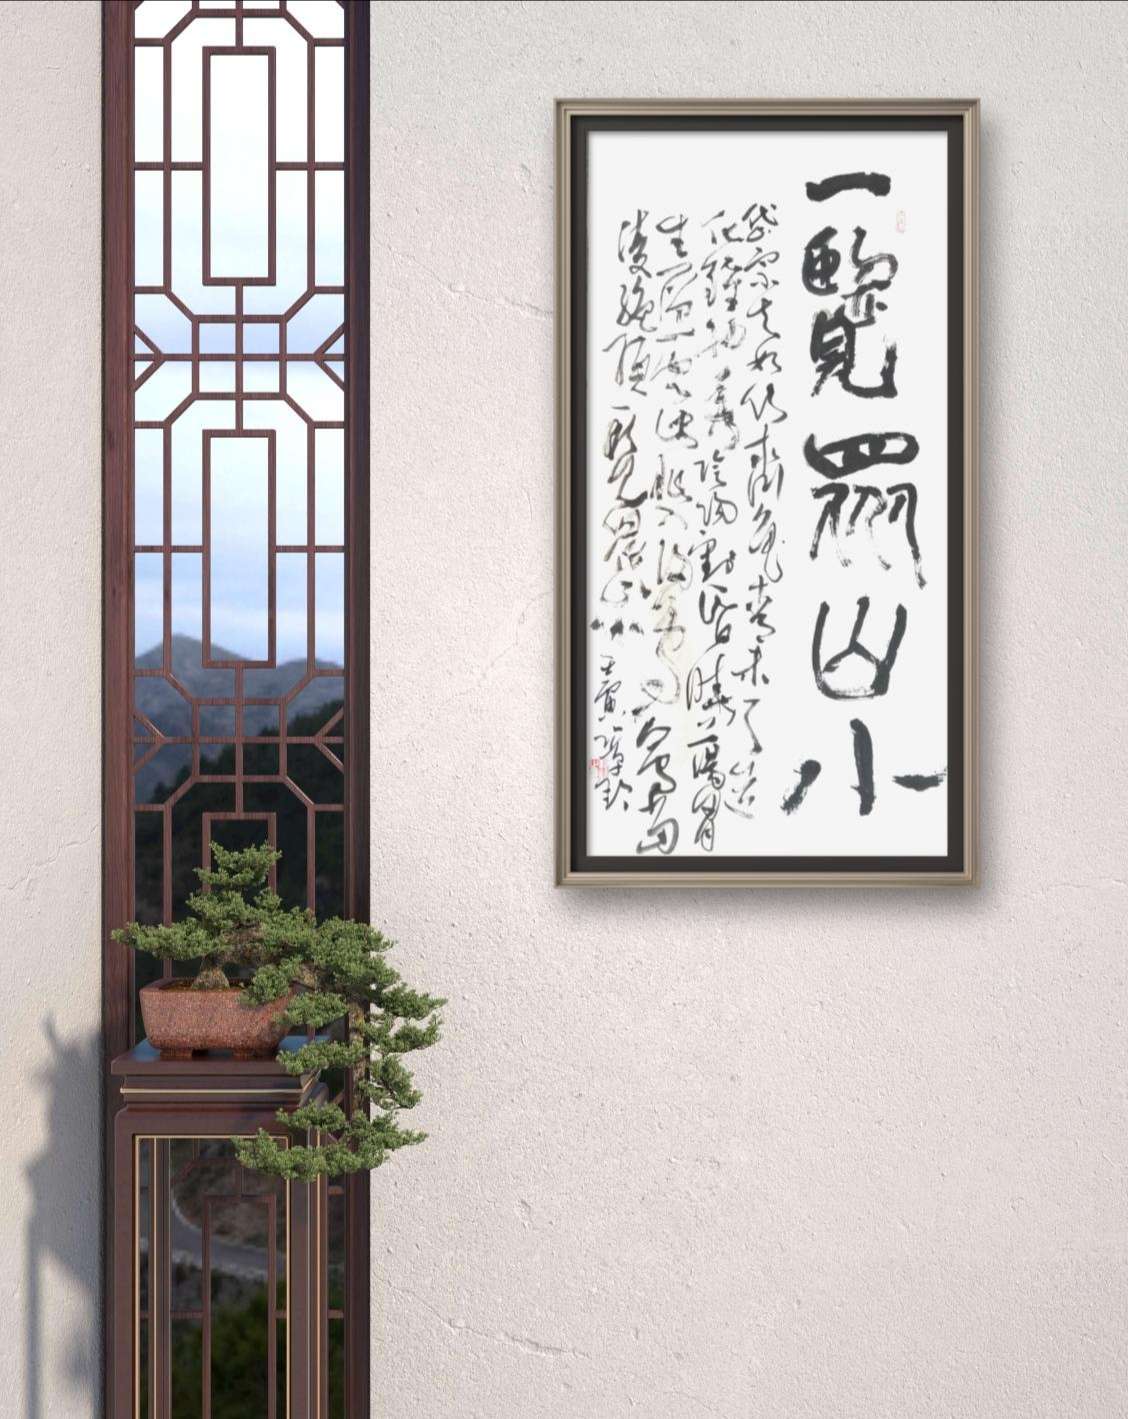 一覽眾山小
岱宗夫如何齊魯青未了造
化鍾神秀陰陽割昏曉蕩胸
生層雲決眥入歸鳥會當
凌絕頂一覽眾山小壬寅